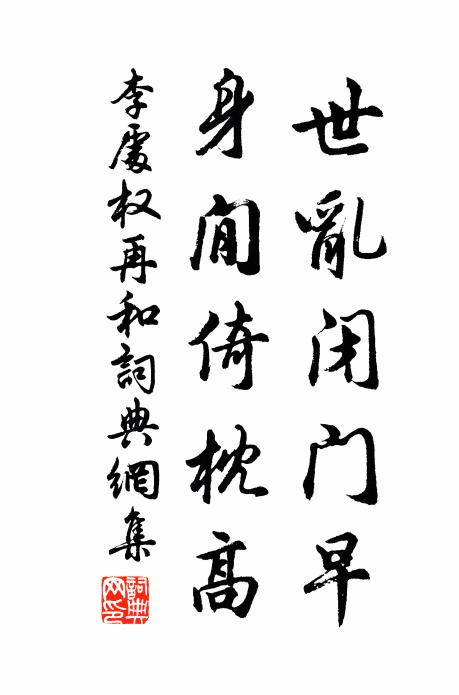 世亂闭门早
身閒倚枕高
李處权再和詞典網集
詞典網印